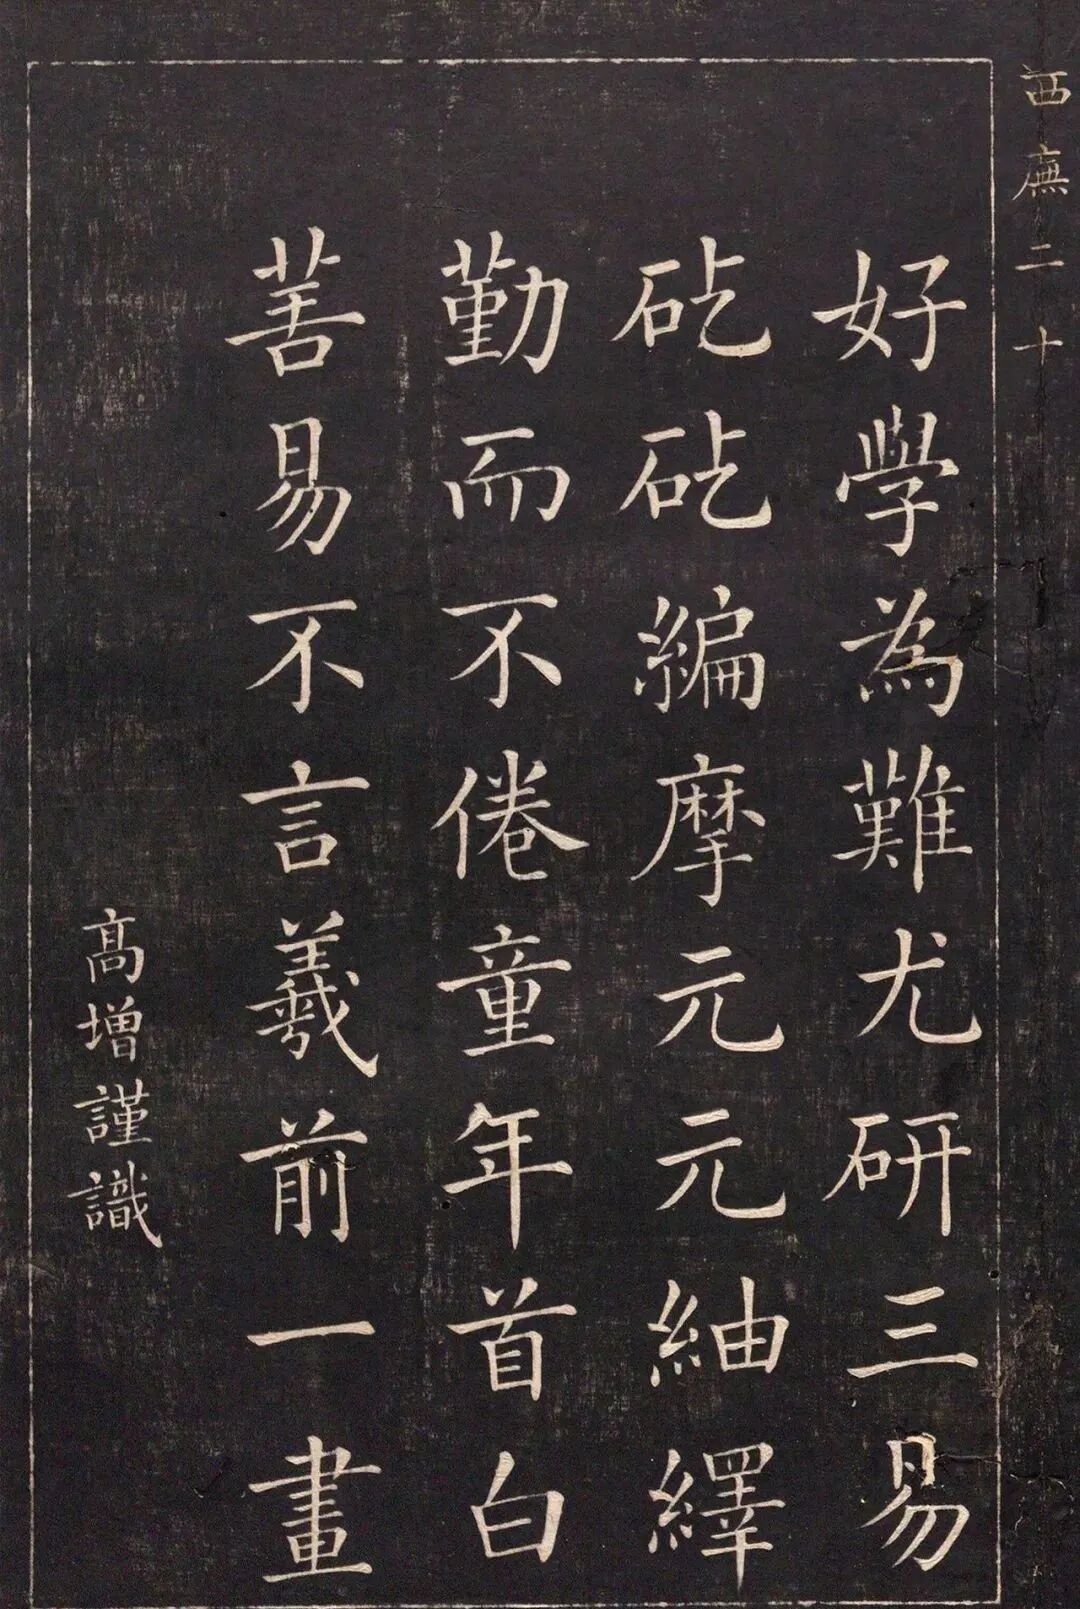 西廡二十
好學為難尤研三易
矻矻編摩元元紬繹
勤而不倦童年首白
善易不言羲前一畫
高增謹識